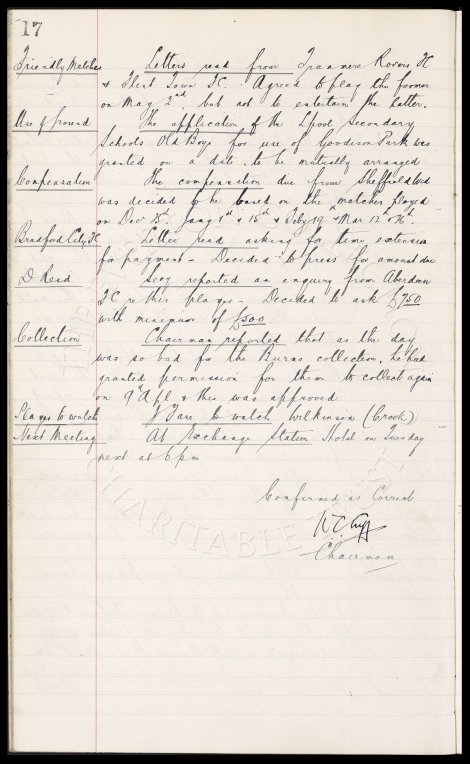 17
Friendly Matches Letters read from Tranmere Rovers FC
& Flint Town FC. Agreed to play the former
on May 2nd but not to entertain the latter.
Use of Ground The application of the Lpool Secondary
Schools Old Boys for use of Goodison Park was
granted on a date to be mutually arranged
Compensation The compensation due from Sheffield Utd
was decided to be based on the matches played
on Dec 25th Jany 1st & 15th & Feby 19 & Mar 12th &
Bradford City FC Letter read asking for time extension
for payment - Decided to press for amount due
D Reid Secy reported an inquiry from Aberdeen
FC re this player - Decided to ask £750
with minimum of £500
Collection Chairman reported that as the day
was so bad for the collection, he had
granted permission for them to collect again
on 9th Apl & this was approved
Players to watch J Fare to watch Wilkinson (Crook)
Next Meeting At Exchange Station Hotel on Tuesday
next at 6 pm
Confirmed as Correct
Chairman
CHARITABLE TRUST